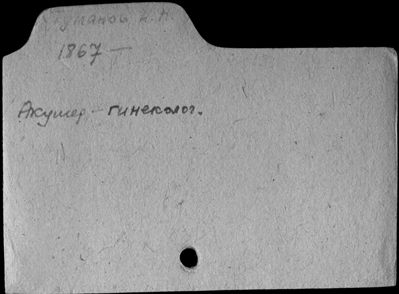 Туманов И. П.
1867 —
Акушер - гинеколог.